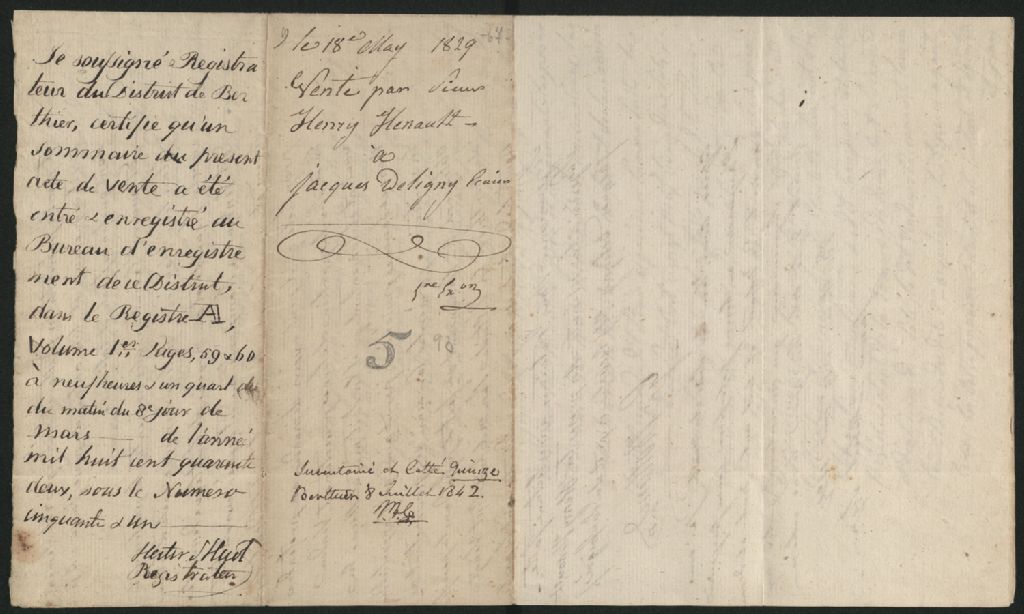 Je soussigné Registra
teur du District de Ber
thier, certifie qu'un
sommaire du present
acte de vente a été
entré & enregistré au
Bureau d'enregistre
ment de ce District,
dans le Registre A,
Volume 1er Pages, 59 & 60
à neuf heures & un quart
du matin du 8e jour de
Mars de l'année
mil huit cent quarante
deux, sous le Numero
cinquante & un
Huot
Registrateur
le 18e May 1829
Vente par Sieur
Henry Henault
a
Jacques Deligny
5
90
Inventorié et Cotté Quinze
Berthier 8 Juillet 1842.